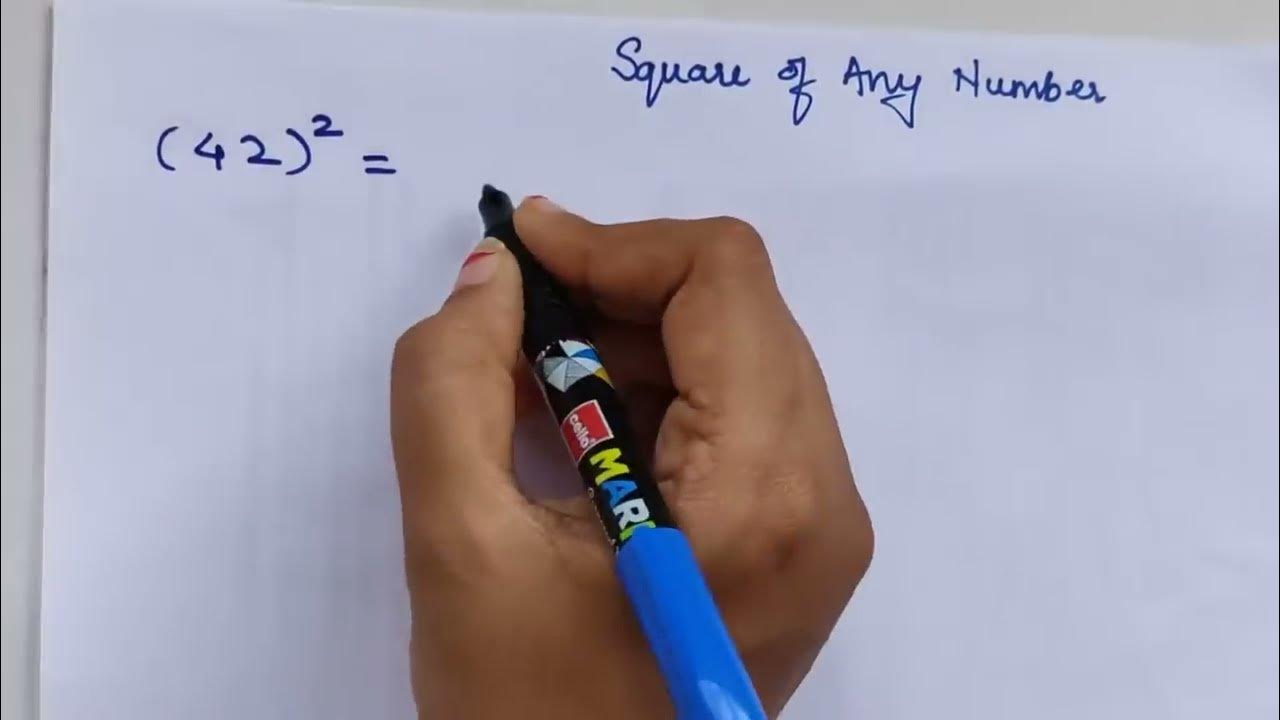 Square of Any Number
(42)² =
cello
MARK